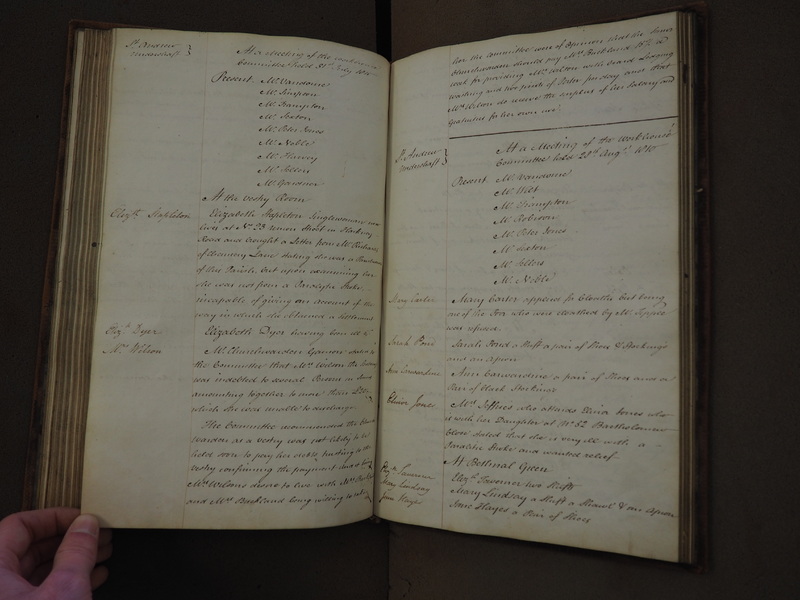 St. Andrew
Undershaft
At a Meeting of the Workhouse
Committee held 31st July 18
Present Mr. Vansomer
Mr. Simpson
Mr. Thompson
Mr. Sexton
Mr. Peter Jones
Mr. Noble
Mr. Harvey
Mr. Sellers
Mr. Gawner
At the Vestry Room
Elizth. Stapleton
Elizabeth Stapleton Singlewoman now
lives at No. 23 Union Street in Hackney
Road and brought a Letter from Mr. Richard
of Chancery Lane stating she was a Parishioner
of this Parish, but upon examining her
she was not from a Paralytic Stroke
incapable of giving an account of the
way in which she obtained a settlement
Elizth. Dyer
Elizabeth Dyer having been
Mrs. Wilson
Mr. Churchwarden Gawner stated to
the Committee that Mrs. Wilson the
was indebted to several Persons in Sums
amounting together to more than
which she was unable to discharge.
The Committee recommended the Church
Warden as a Vestry was not likely to be
held soon to pay her debts trusting to the
Vestry confirming the payment and
Mrs. Wilson's desire to live with Mrs. Buckland
and Mrs. Buckland being willing to
her the Committee were of opinion that the
Churchwarden should pay Mrs. Buckland
week for providing Mrs. Wilson with Board Lodging
washing and two pints of Porter per day and that
Mrs. Wilson do receive the surplus of her Salary and
Gratuities for her own use.
St. Andrew
Undershaft
At a Meeting of the Workhouse
Committee held 28th Augt. 18
Present Mr. Vansomer
Mr. West
Mr. Thompson
Mr. Robinson
Mr. Peter Jones
Mr. Sexton
Mr. Sellers
Mr. Noble
Mary Carter
Mary Carter applied for Cloaths, but being
one of the Poor who were cloathed by Mr. Tipple
was refused.
Sarah Pond
Sarah Pond a Shift a pair of Shoes & Stockings
and an apron
Ann Carwardine
Ann Carwardine a pair of Shoes and a
Pair of black Stockings
Elinor Jones
Mrs. Jeffries who attends Elinor Jones who
is with her Daughter at No. 52 Bartholomew
Close stated that she is very ill with a
Paralitic Stroke and wanted relief.
At Bethnal Green
Elizth. Tavenor
Elizth. Tavenor two Shifts
Mary Lindsay
Mary Lindsay a Shift a Shawl & an Apron
Jane Hayes
Jane Hayes a Pair of Shoes